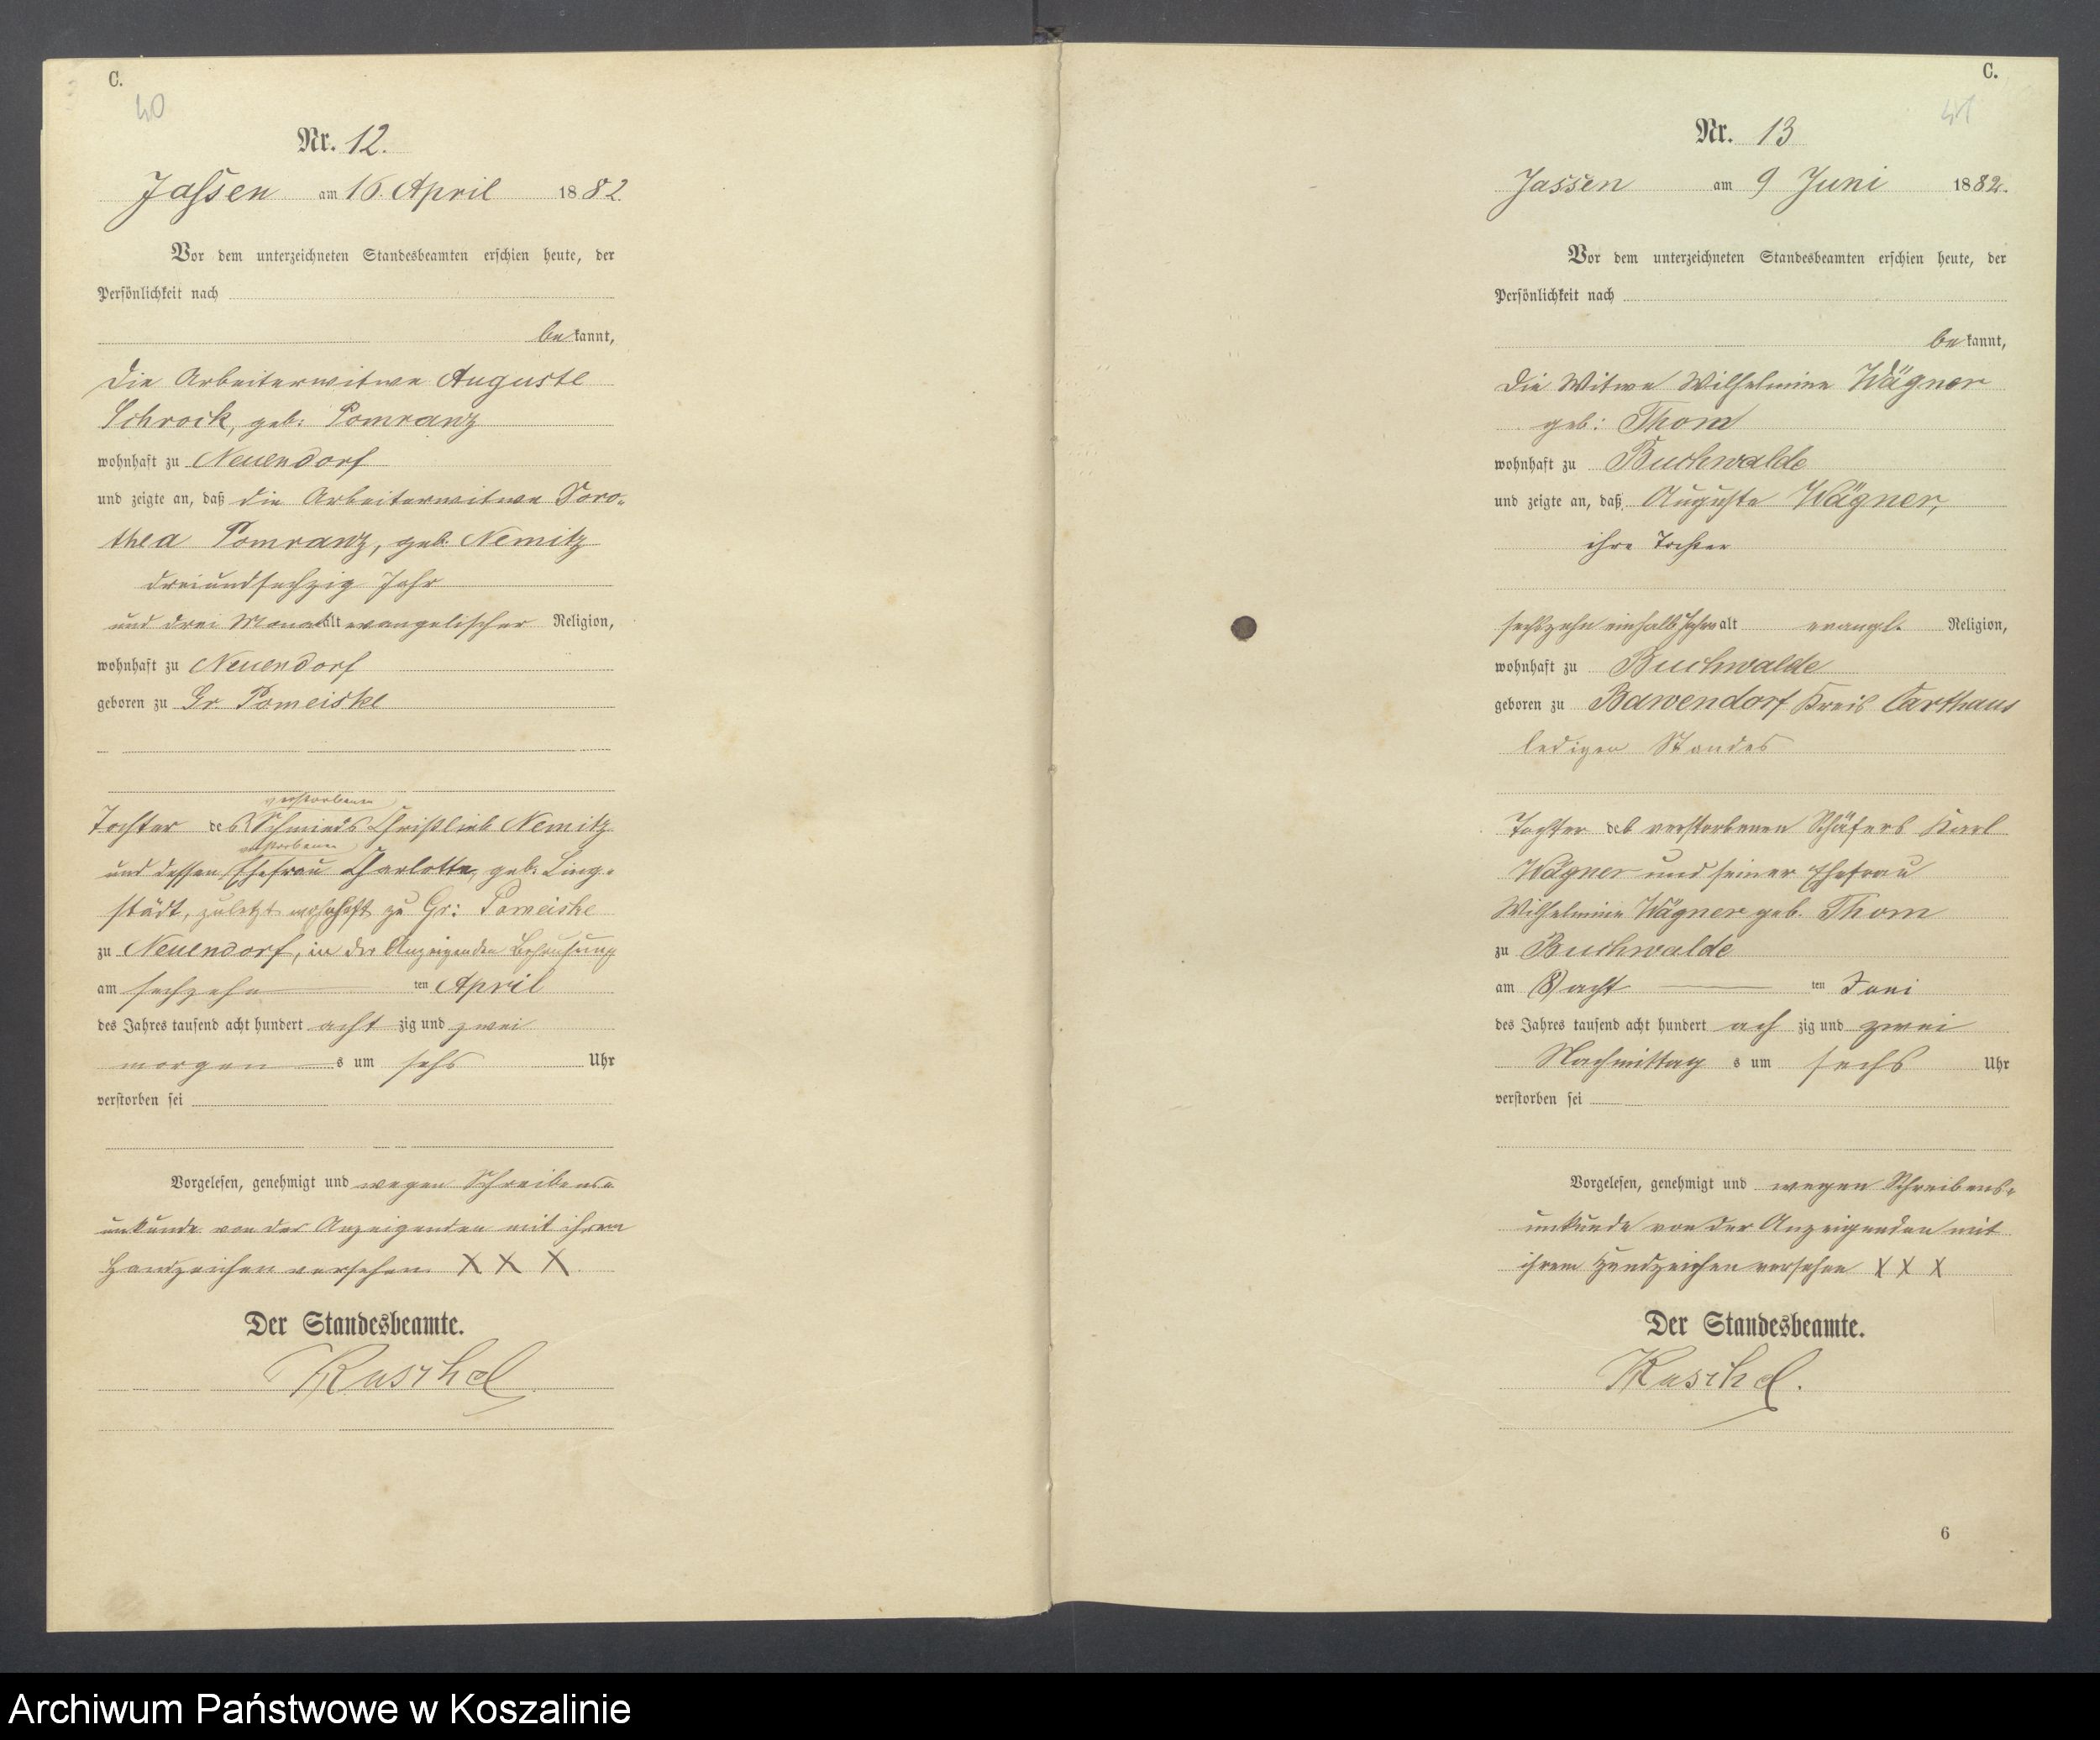 C.
40
Nr. 12.
Jassen am 16. April 1882.
Vor dem unterzeichneten Standesbeamten erschien heute, der
Persönlichkeit nach
bekannt,
die Arbeiterwitwe Auguste
Schrock, geb: Pomranz
wohnhaft zu Neuendorf
und zeigte an, daß die Arbeiterwitwe Doro-
thea Pomranz, geb. Nemitz
dreiundsechzig Jahr
und drei Monat alt evangelischer Religion,
wohnhaft zu Neuendorf
geboren zu Gr Pomeiske
verstorbenen
Tochter des Schmieds Christlieb Nemitz
verstorbenen
und dessen Ehefrau Charlotte, geb. Ling-
städt, zuletzt wohnhaft zu Gr: Pomeiske
zu Neuendorf, in der Anzeigenden Behausung
am sechzehn ten April
des Jahres tausend acht hundert acht zig und zwei
morgen s um sechs Uhr
verstorben sei
Vorgelesen, genehmigt und wegen Schreibens-
unkunde von der Anzeigenden mit ihrem
Handzeichen versehen X X X.
Der Standesbeamte.
Ruschel
C.
41
Nr. 13
Jassen am 9 Juni 1882.
Vor dem unterzeichneten Standesbeamten erschien heute, der
Persönlichkeit nach
bekannt,
die Witwe Wilhelmine Wägner
geb: Thom
wohnhaft zu Buchwalde
und zeigte an, daß Auguste Wägner,
ihre Tochter
sechszehn einhalb Jahre alt evangl. Religion,
wohnhaft zu Buchwalde
geboren zu Bawendorf Kreis Carthaus
ledigen Standes
Tochter des verstorbenen Schäfers Karl
Wägner und seiner Ehefrau
Wilhelmine Wägner geb. Thom
zu Buchwalde
am (8) acht ten Juni
des Jahres tausend acht hundert ach zig und zwei
Nachmittag s um sechs Uhr
verstorben sei
Vorgelesen, genehmigt und wegen Schreibens-
unkunde von der Anzeigenden mit
ihrem Handzeichen versehen X X X
Der Standesbeamte.
Ruschel.
6
Archiwum Państwowe w Koszalinie